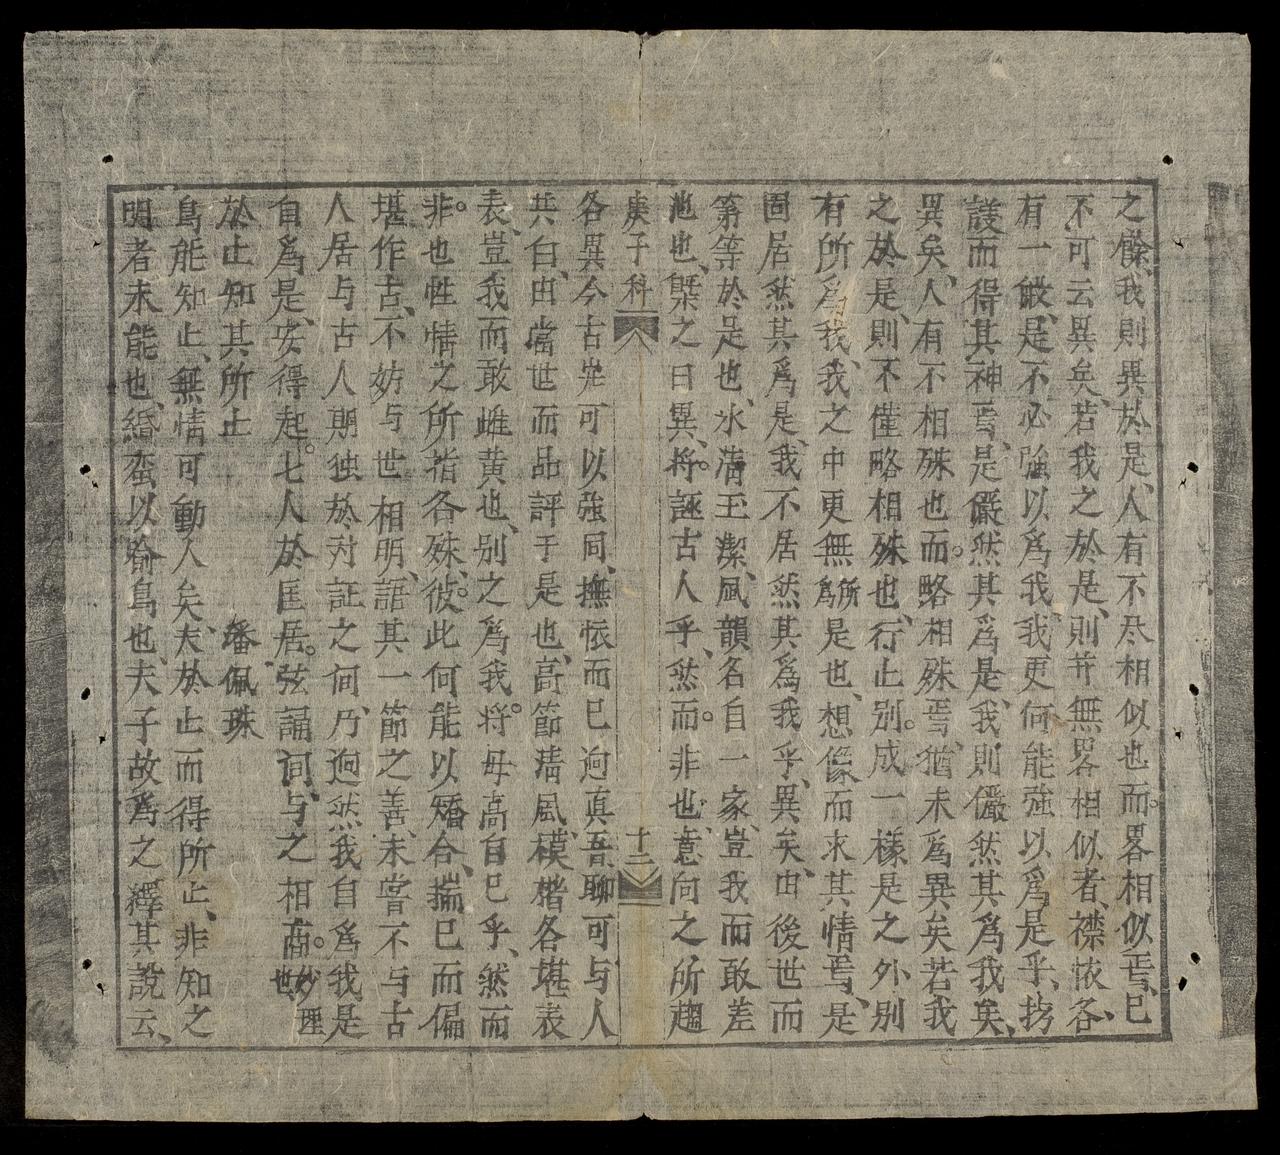 之餘、我則異於是、人有不尽相似也而。畧相似焉、已
不可云異矣、若我之於是、則并無畧相似者、襟懷各、
有一般、是不必強以爲我、我更何能強以爲是乎、
護而得其神焉、是儼然其爲是、我則儼然其爲我矣、
異矣、人有不相殊也而。略相殊焉、猶未爲異矣若我
之於是、則不僅略相殊也、行止别。成一樣是之外别
有所爲我、我之中更無所爲是也、想像而求其情焉、是
固居然其爲是、我不居然其爲我乎、異矣、由後世而
第等於是也、氷清玉潔、風韻名自一家、豈我而敢差
池也、槩之曰異、将。誣古人乎、然而。非也、意向之所趨
庚子科 十二
各異今古岂可以強同、撫懷而已逈真吾聊可、与人
共白、由當世而品評于是也、高節清風、模楷各堪表
表、豈我而敢雌黄也、别之爲我、将。毋高自已乎、然而
非。也性情之所指各殊、彼。此何能以矯合、揣已而偏
堪作古、不妨与世相明、語其一節之善、未嘗不与古
人居与古人期独於対証之何、乃逈然我自爲我是
自爲是、安得起。七人於匡居。弦誦间、与之相商。也妙理
於止知其所止 潘佩珠
鳥能知止、無情可動人矣、夫於止而得所止、非知之
明者未能也、緡蛮以喻鳥也、夫子故爲之繹其說云、